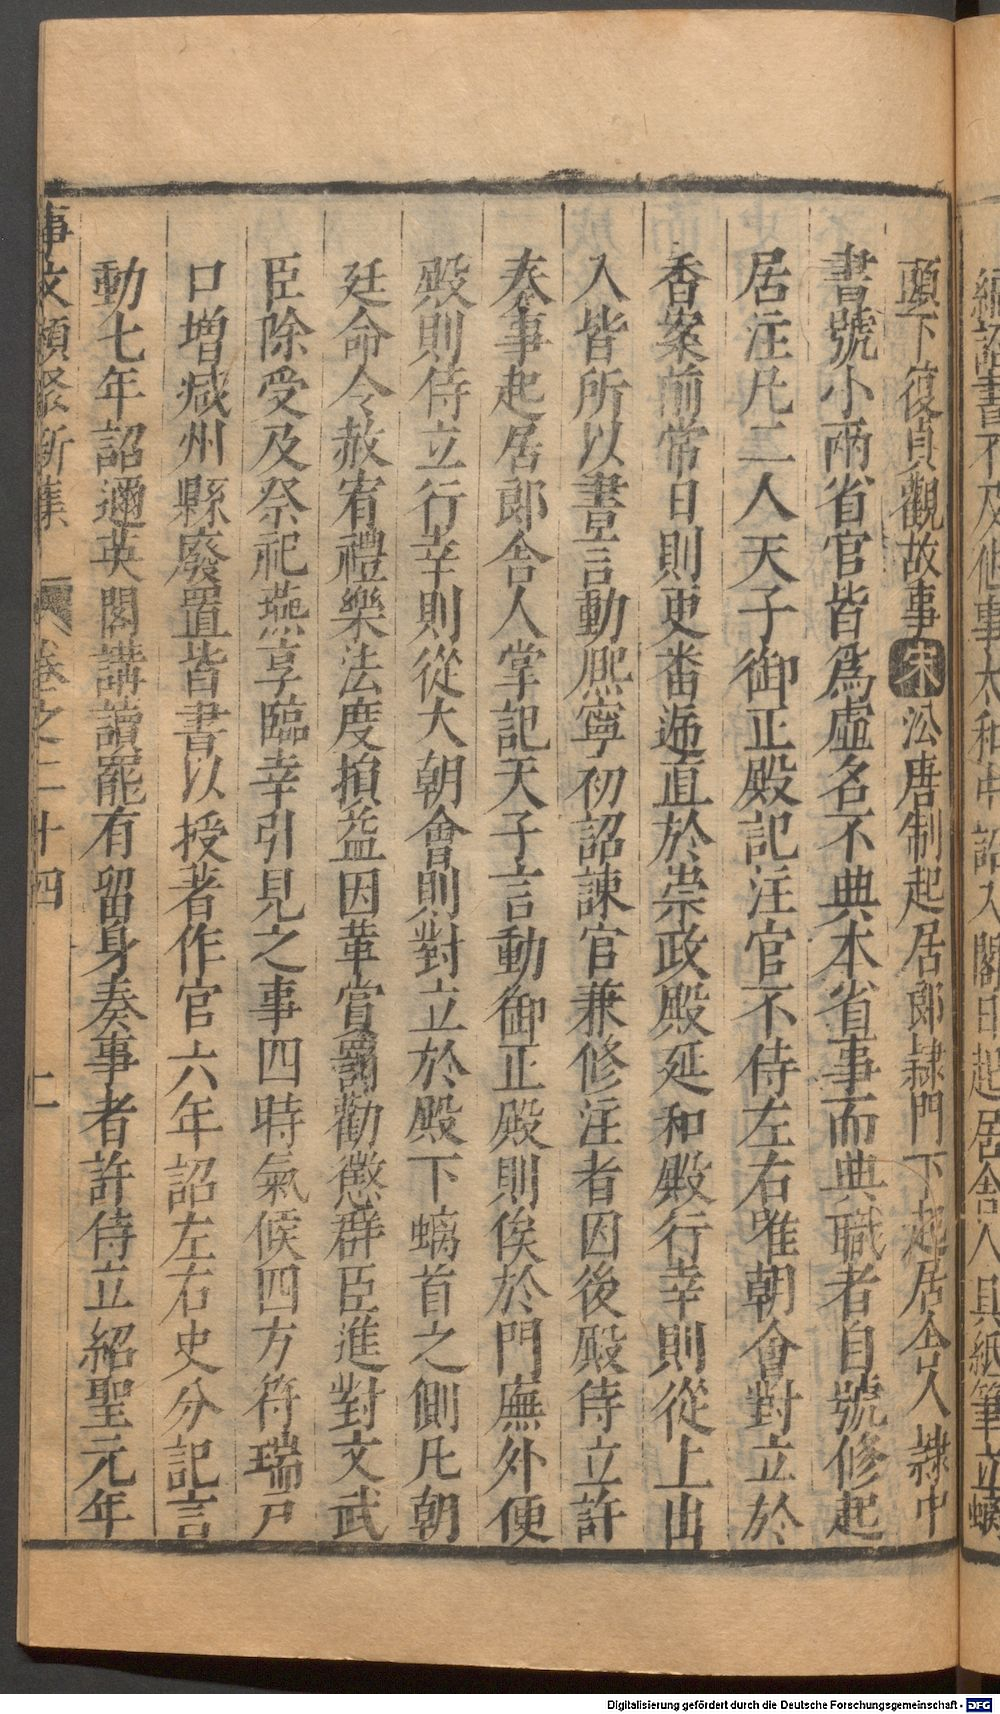 編詔書不及他事太和中詔入閣日起居舍人具紙筆立螭
頭下復貞觀故事宋㳂唐制起居郎隷門下起居舍人隷中
書號小兩省官皆爲虛名不典本省事而典職者自號修起
居注凡二人天子御正殿記注官不侍左右唯朝會對立於
香案前常日則更畨逓直於崇政殿延和殿行幸則從上出
入皆所以書言動熈寧初詔諫官兼修注者因後殿侍立許
奏事起居郎舍人掌記天子言動御正殿則俟於門廡外便
殿則侍立行幸則從大朝會則對立於殿下螭首之側凡朝
廷命令赦宥禮樂法度損益因革賞罰勸懲群臣進對文武
臣除受及祭祀燕享臨幸引見之事四時氣候四方符瑞戸
口增减州縣廢置皆書以授著作官六年詔左右史分記言
動七年詔邇英閣講讀罷有留身奏事者許侍立紹聖元年
事文類聚新集 卷之二十四 二
Digitalisierung gefördert durch die Deutsche Forschungsgemeinschaft - DFG